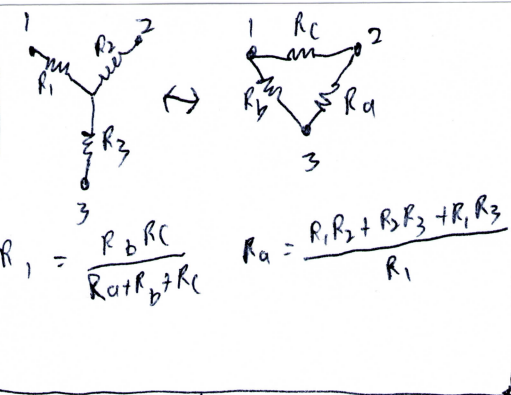 1 2 1 Rc 2
R1 R2 Rb Ra
↔
R3
3 3
R1 = Rb Rc / Ra+Rb+Rc Ra = R1R2 + R2R3 + R1R3 / R1